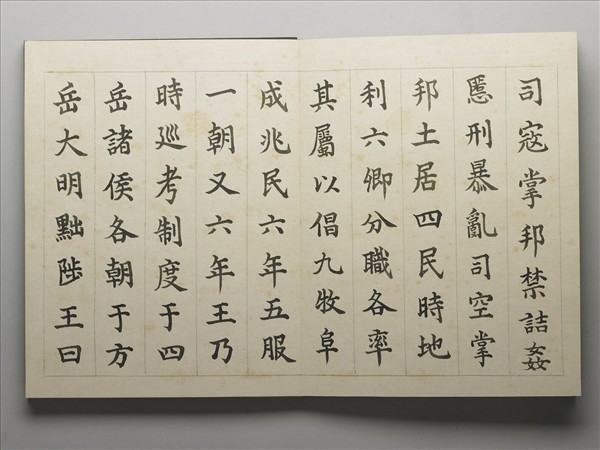 司寇掌邦禁詰姦
慝刑暴亂司空掌
邦土居四民時地
利六卿分職各率
其屬以倡九牧阜
成兆民六年五服
一朝又六年王乃
時巡考制度于四
岳諸侯各朝于方
岳大明黜陟王曰